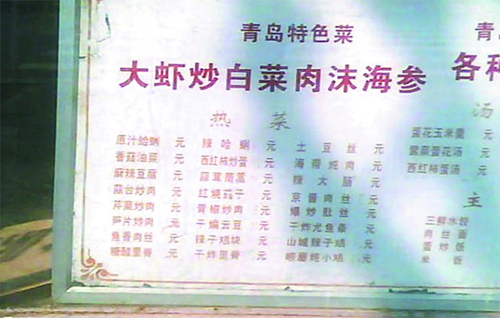 青岛特色菜
大虾炒白菜肉沫海参
各种
热菜
汤
原汁蛤蜊 元
香菇油菜 元
麻辣豆腐 元
蒜台炒肉 元
芹菜炒肉 元
笋片炒肉 元
鱼香肉丝 元
糖醋里脊 元
辣哈蜊 元
西红柿炒蛋 元
蒜茸茼蒿 元
红烧茄子 元
青椒炒肉 元
干煸云豆 元
辣子鸡块 元
干炸里脊 元
土豆丝 元
海带炖肉 元
辣大肠 元
京酱肉丝 元
爆炒肚丝 元
干炸尤鱼条 元
山城辣子鸡 元
崂山炖小鸡 元
蛋花玉米羹 元
紫菜蛋花汤 元
西红柿蛋汤 元
主
三鲜水饺
肉丝面
蛋炒饭
米饭